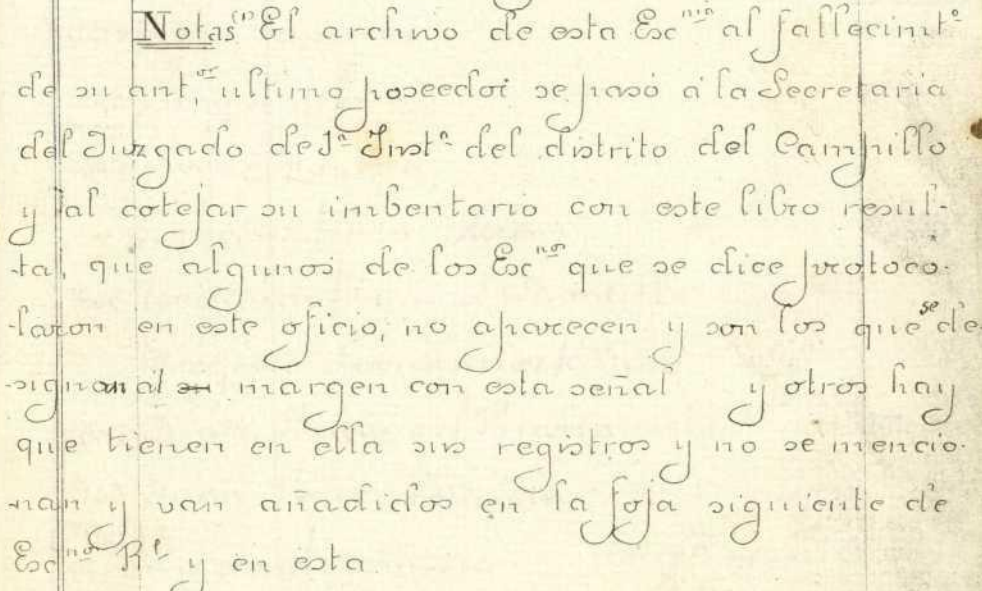 Notas (1) El archivo de esta Esc.nia al fallecimt.o
de su ant.or ultimo poseedor se pasó á la Secretaria
del Juzgado de 1.a Inst.a del distrito del Campillo
y al cotejar su imbentario con este libro resul-
-ta, que algunos de los Esc.nos que se dice protoco-
-laron en este oficio, no aparecen y son los que se de-
-signan al margen con esta señal y otros hay
que tienen en ella sus registros y no se mencio-
-nan y van añadidos en la foja siguiente de
Esc.nos R.s y en esta.